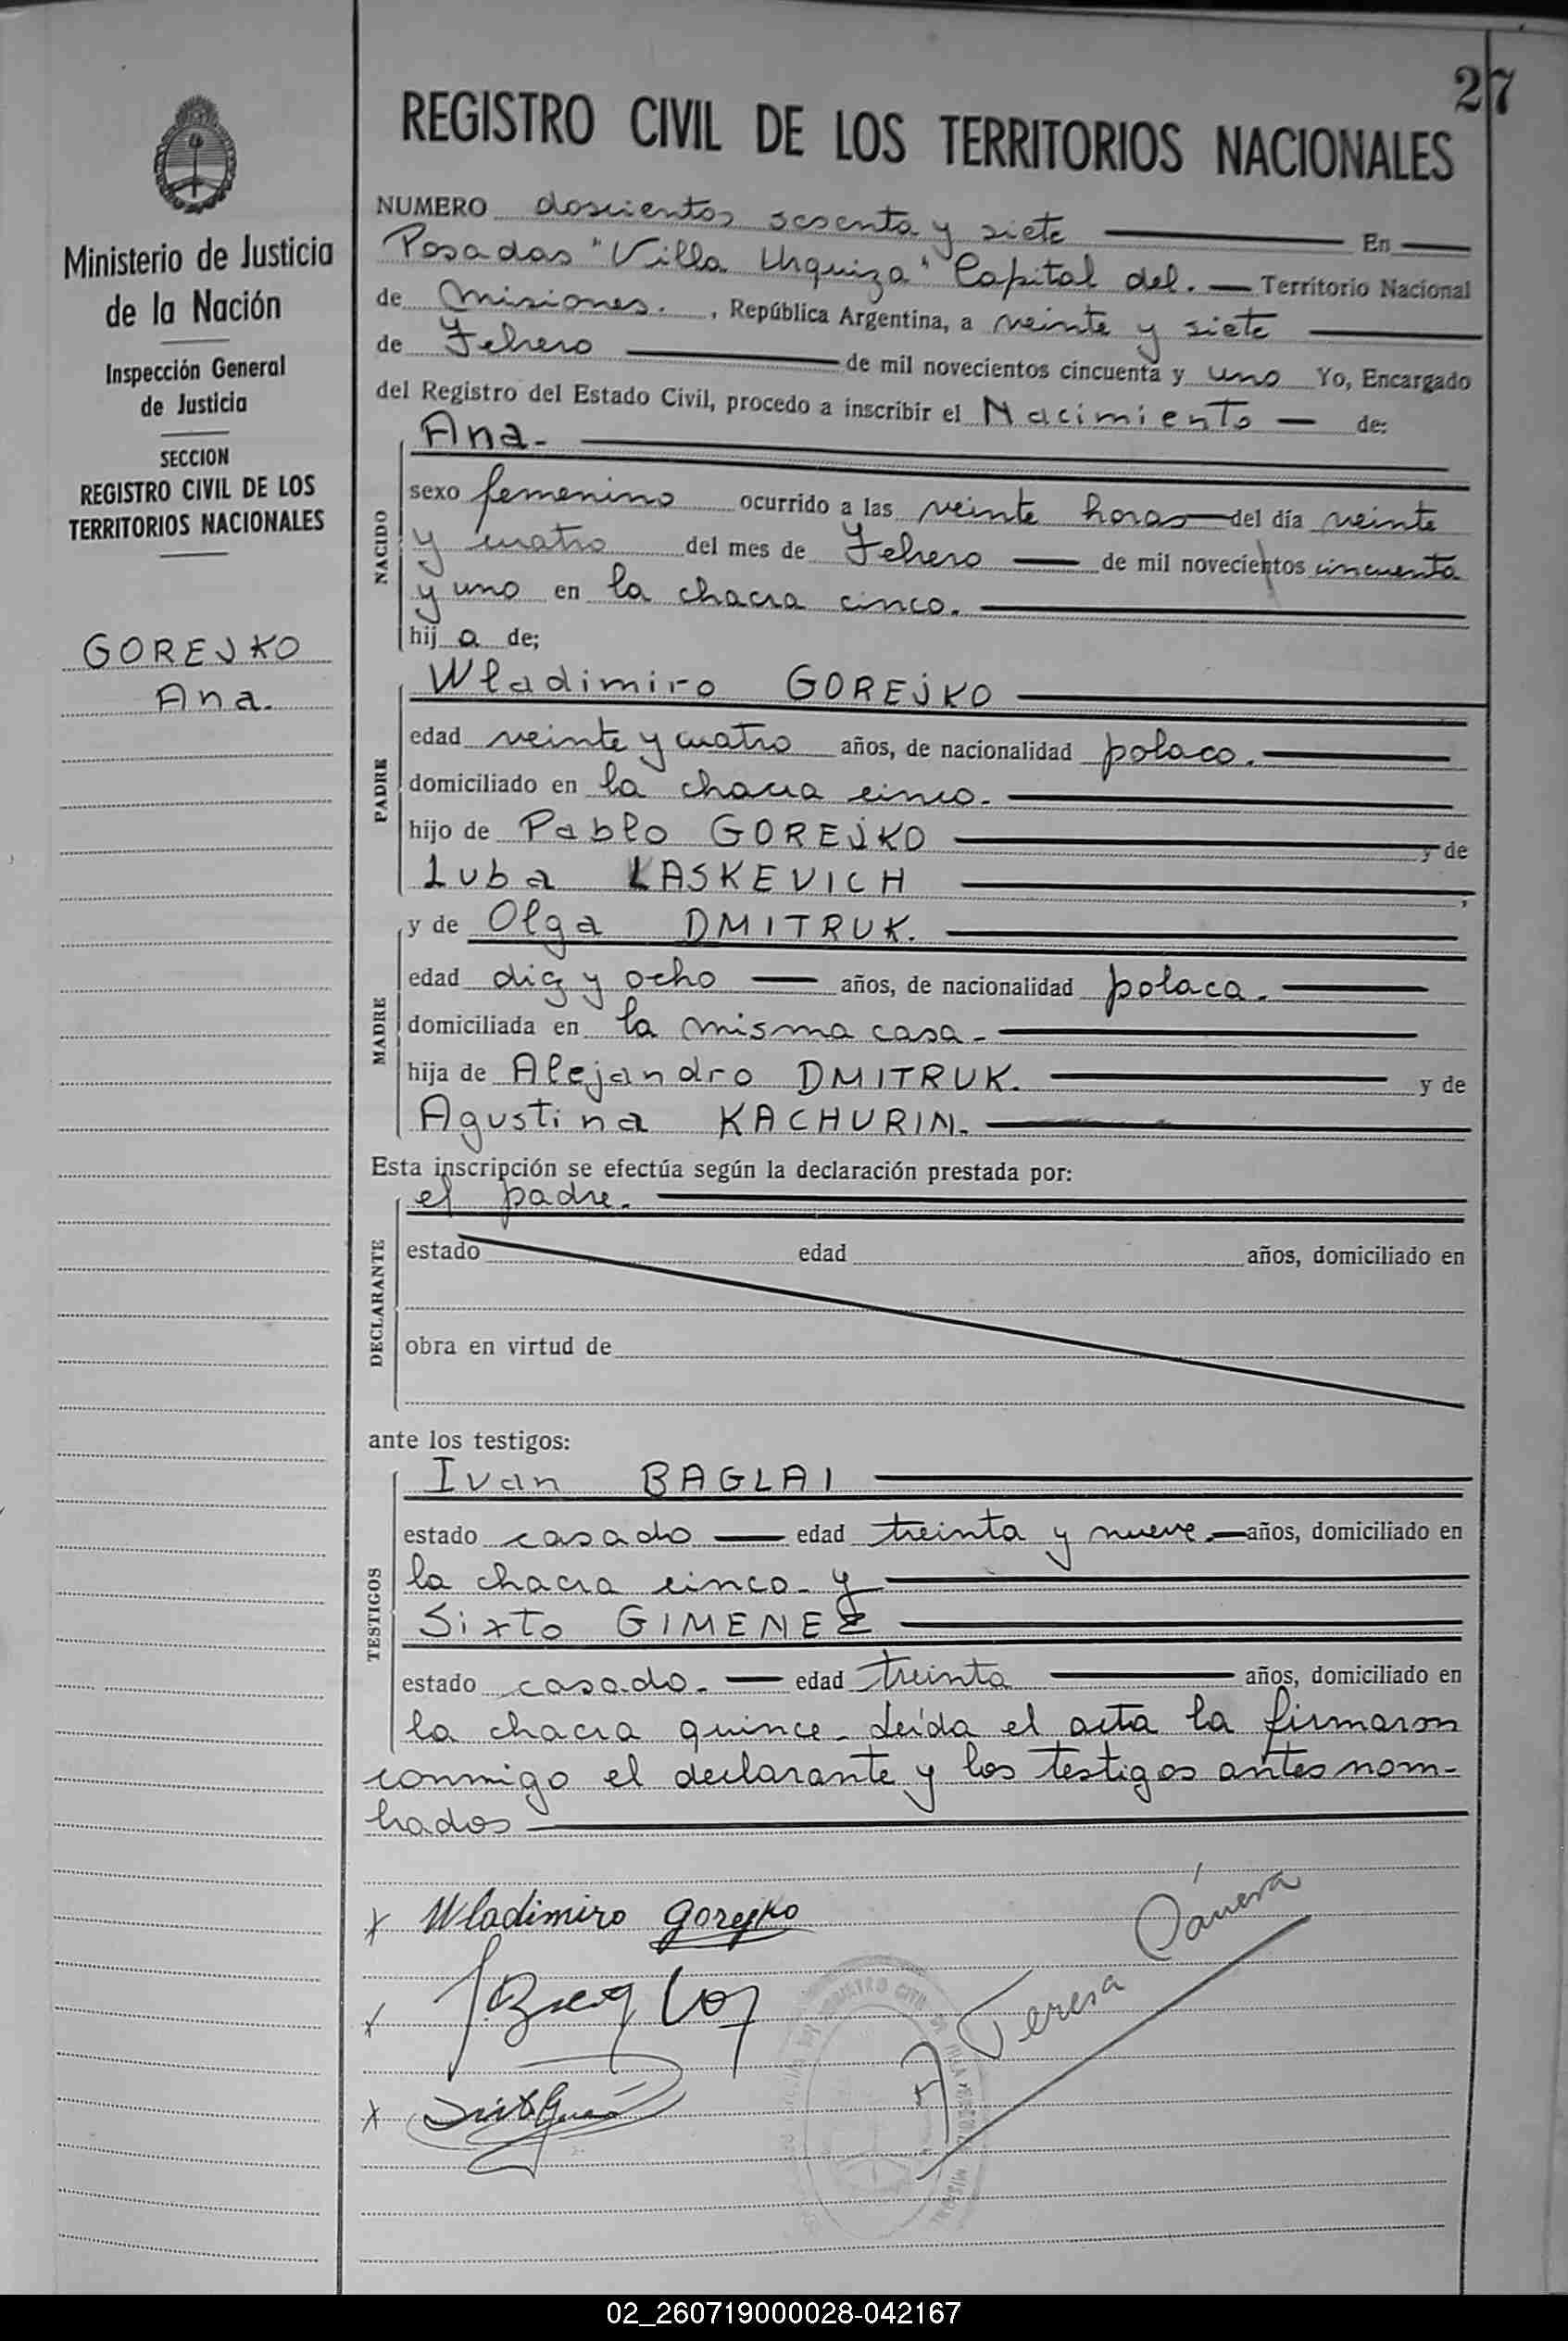 27
REGISTRO CIVIL DE LOS TERRITORIOS NACIONALES
Ministerio de Justicia
de la Nación
Inspección General
de Justicia
SECCION
REGISTRO CIVIL DE LOS
TERRITORIOS NACIONALES
GOREJKO
Ana.
NUMERO doscientos sesenta y siete En
Posadas "Villa Urquiza" Capital del. Territorio Nacional
de Misiones. , República Argentina, a veinte y siete
de Febrero de mil novecientos cincuenta y uno Yo, Encargado
del Registro del Estado Civil, procedo a inscribir el Nacimiento de:
Ana.
NACIDO
sexo femenino ocurrido a las veinte horas del día veinte
y cuatro del mes de Febrero de mil novecientos cincuenta
y uno en la chacra cinco.
hija de;
PADRE
Wladimiro GOREJKO
edad veinte y cuatro años, de nacionalidad polaco.
domiciliado en la chacra cinco.
hijo de Pablo GOREJKO y de
Luba LASKEVICH ,
MADRE
y de Olga DMITRUK.
edad diez y ocho años, de nacionalidad polaca.
domiciliada en la misma casa.
hija de Alejandro DMITRUK. y de
Agustina KACHURIN.
Esta inscripción se efectúa según la declaración prestada por:
DECLARANTE
el padre.
estado edad años, domiciliado en
obra en virtud de
ante los testigos:
TESTIGOS
Ivan BAGLAI
estado casado edad treinta y nueve. años, domiciliado en
la chacra cinco y
Sixto GIMENEZ
estado casado. edad treinta años, domiciliado en
la chacra quince. Leída el acta la firmaron
conmigo el declarante y los testigos antes nom-
brados
x Wladimiro Gorejko
x
x
Teresa
02_260719000028-042167